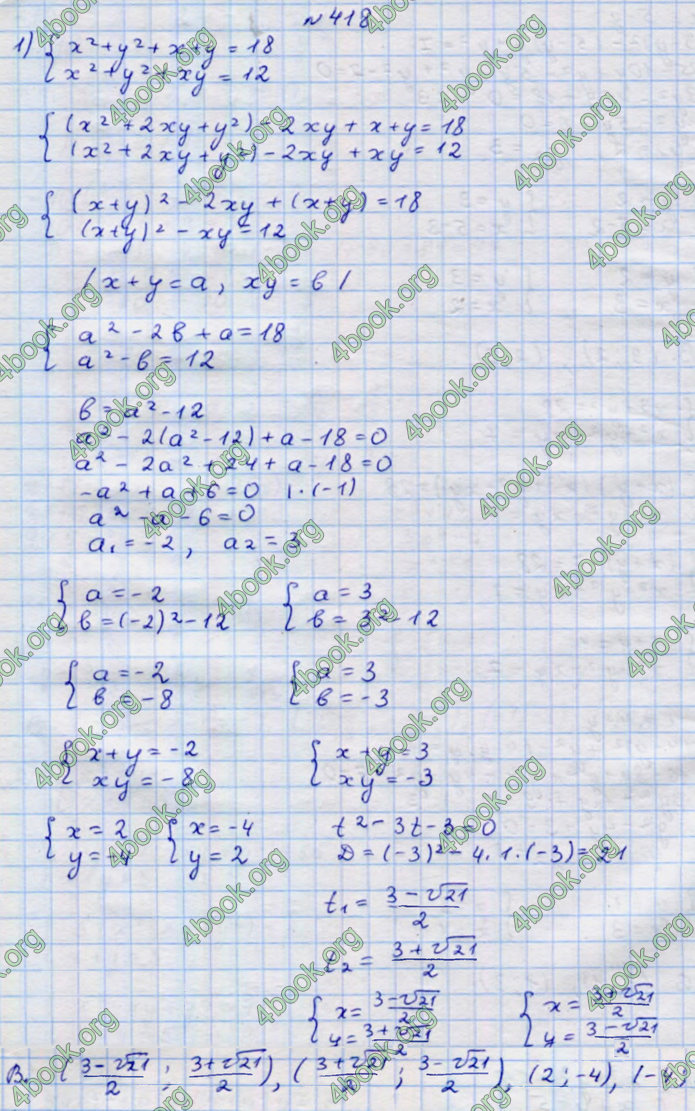 №418
1) { x² + y² + x + y = 18
x² + y² + xy = 12
{ (x² + 2xy + y²) - 2xy + x + y = 18
(x² + 2xy + y²) - 2xy + xy = 12
{ (x+y)² - 2xy + (x+y) = 18
(x+y)² - xy = 12
/ x + y = a, xy = b /
{ a² - 2b + a = 18
a² - b = 12
b = a² - 12
a² - 2(a² - 12) + a - 18 = 0
a² - 2a² + 24 + a - 18 = 0
-a² + a + 6 = 0 | · (-1)
a² - a - 6 = 0
a₁ = -2, a₂ = 3
{ a = -2 { a = 3
b = (-2)² - 12 b = 3² - 12
{ a = -2 { a = 3
b = -8 b = -3
{ x + y = -2 { x + y = 3
xy = -8 xy = -3
{ x = 2 { x = -4 t² - 3t - 3 = 0
y = -4 y = 2 D = (-3)² - 4 · 1 · (-3) = 21
t₁ = (3 - √21)/2
t₂ = (3 + √21)/2
{ x = (3 - √21)/2 { x = (3 + √21)/2
y = (3 + √21)/2 y = (3 - √21)/2
В. ( (3 - √21)/2 ; (3 + √21)/2 ), ( (3 + √21)/2 ; (3 - √21)/2 ), (2 ; -4), (-4;
4book.org